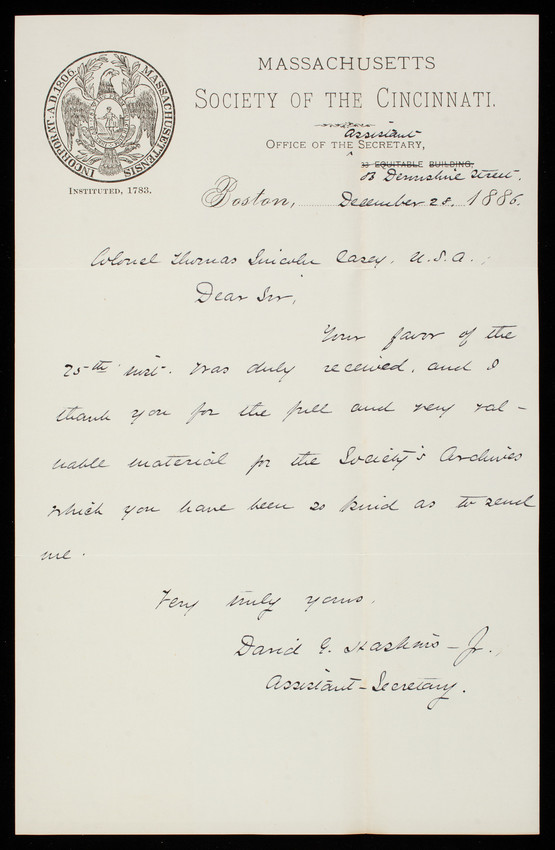 INCORPORAT: A.D. 1806. MASSACHUSETTENSIS
INSTITUTED, 1783.
MASSACHUSETTS
SOCIETY OF THE CINCINNATI.
Assistant
OFFICE OF THE SECRETARY,
33 EQUITABLE BUILDING,
53 Devonshire Street.
Boston, December 28. 1886.
Colonel Thomas Lincoln Casey, U.S.A.,
Dear Sir,
Your favor of the
25th inst. was duly received, and I
thank you for the full and very val-
uable material for the Society's Archives
which you have been so kind as to send
me.
Very truly yours,
David G. Haskins-Jr.,
Assistant-Secretary.